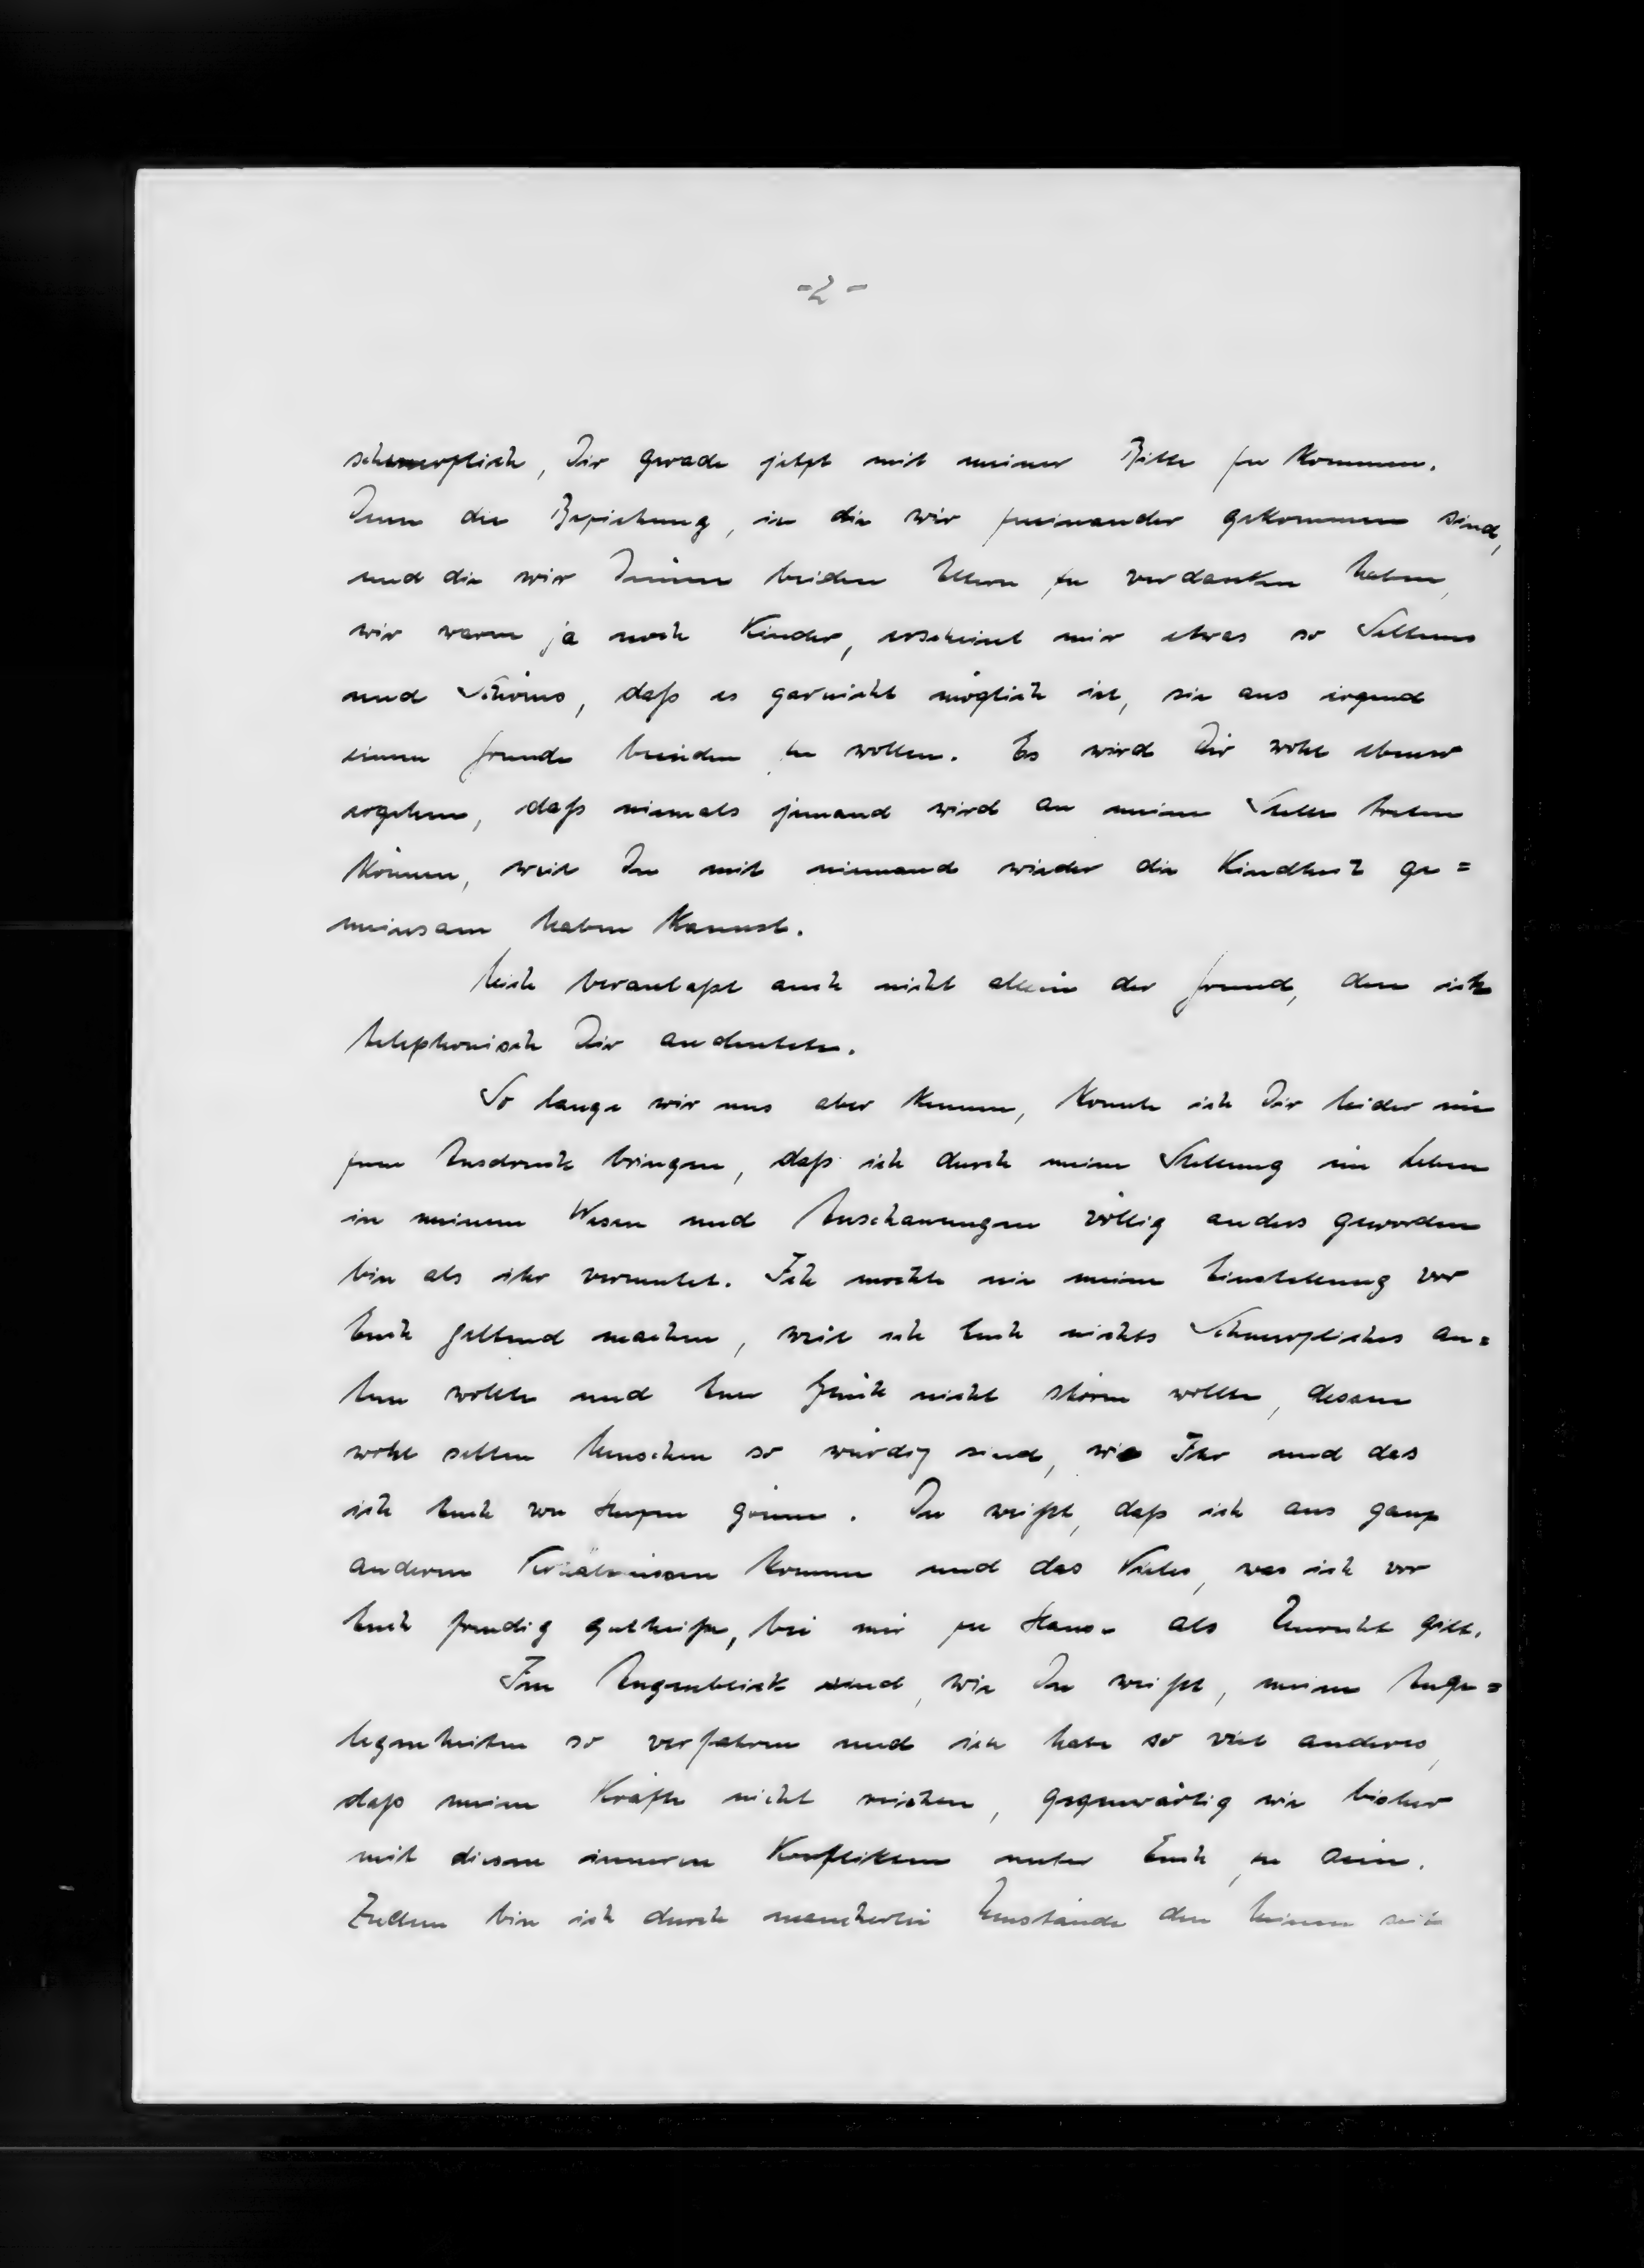 -2-
schmerzlich, Dir gerade jetzt mit meiner Bitte zu kommen.
Denn die Beziehung, in die wir zueinander gekommen sind,
und die wir Deinen beiden Eltern zu verdanken haben,
wir waren ja noch Kinder, erscheint mir etwas so Seltenes
und Schönes, daß es garnicht möglich ist, sie aus irgend
einem Grunde beenden zu wollen. Es wird Dir wohl ebenso
ergehen, daß niemals jemand wird an meine Stelle treten
können, weil Du mit niemand wieder die Kindheit ge=
meinsam haben kannst.
Mich veranlaßt auch nicht allein der Grund, den ich
telephonisch Dir andeutete.
So lange wir uns aber kennen, konnte ich Dir leider nie
zum Ausdruck bringen, daß ich durch meine Stellung im Leben
in meinem Wesen und Anschauungen völlig anders geworden
bin als ihr vermutet. Ich mochte nie meine Einstellung vor
Euch geltend machen, weil ich Euch nichts Schmerzliches an=
tun wollte und Euer Glück nicht stören wollte, dessen
wohl selten Menschen so würdig sind, wie Ihr und das
ich Euch von Herzen gönne. Du weißt, daß ich aus ganz
anderen Verhältnissen komme und das Vieles, was ich vor
Euch freudig gutheiße, bei mir zu Hause als Unrecht gilt.
Im Augenblick sind, wie Du weißt, meine Ange=
legenheiten so verfahren und ich habe so viel anderes,
daß meine Kräfte nicht reichen, gegenwärtig wie bisher
mit diesen inneren Konflikten unter Euch zu sein.
Zudem bin ich durch mancherlei Umstände den keinen seit